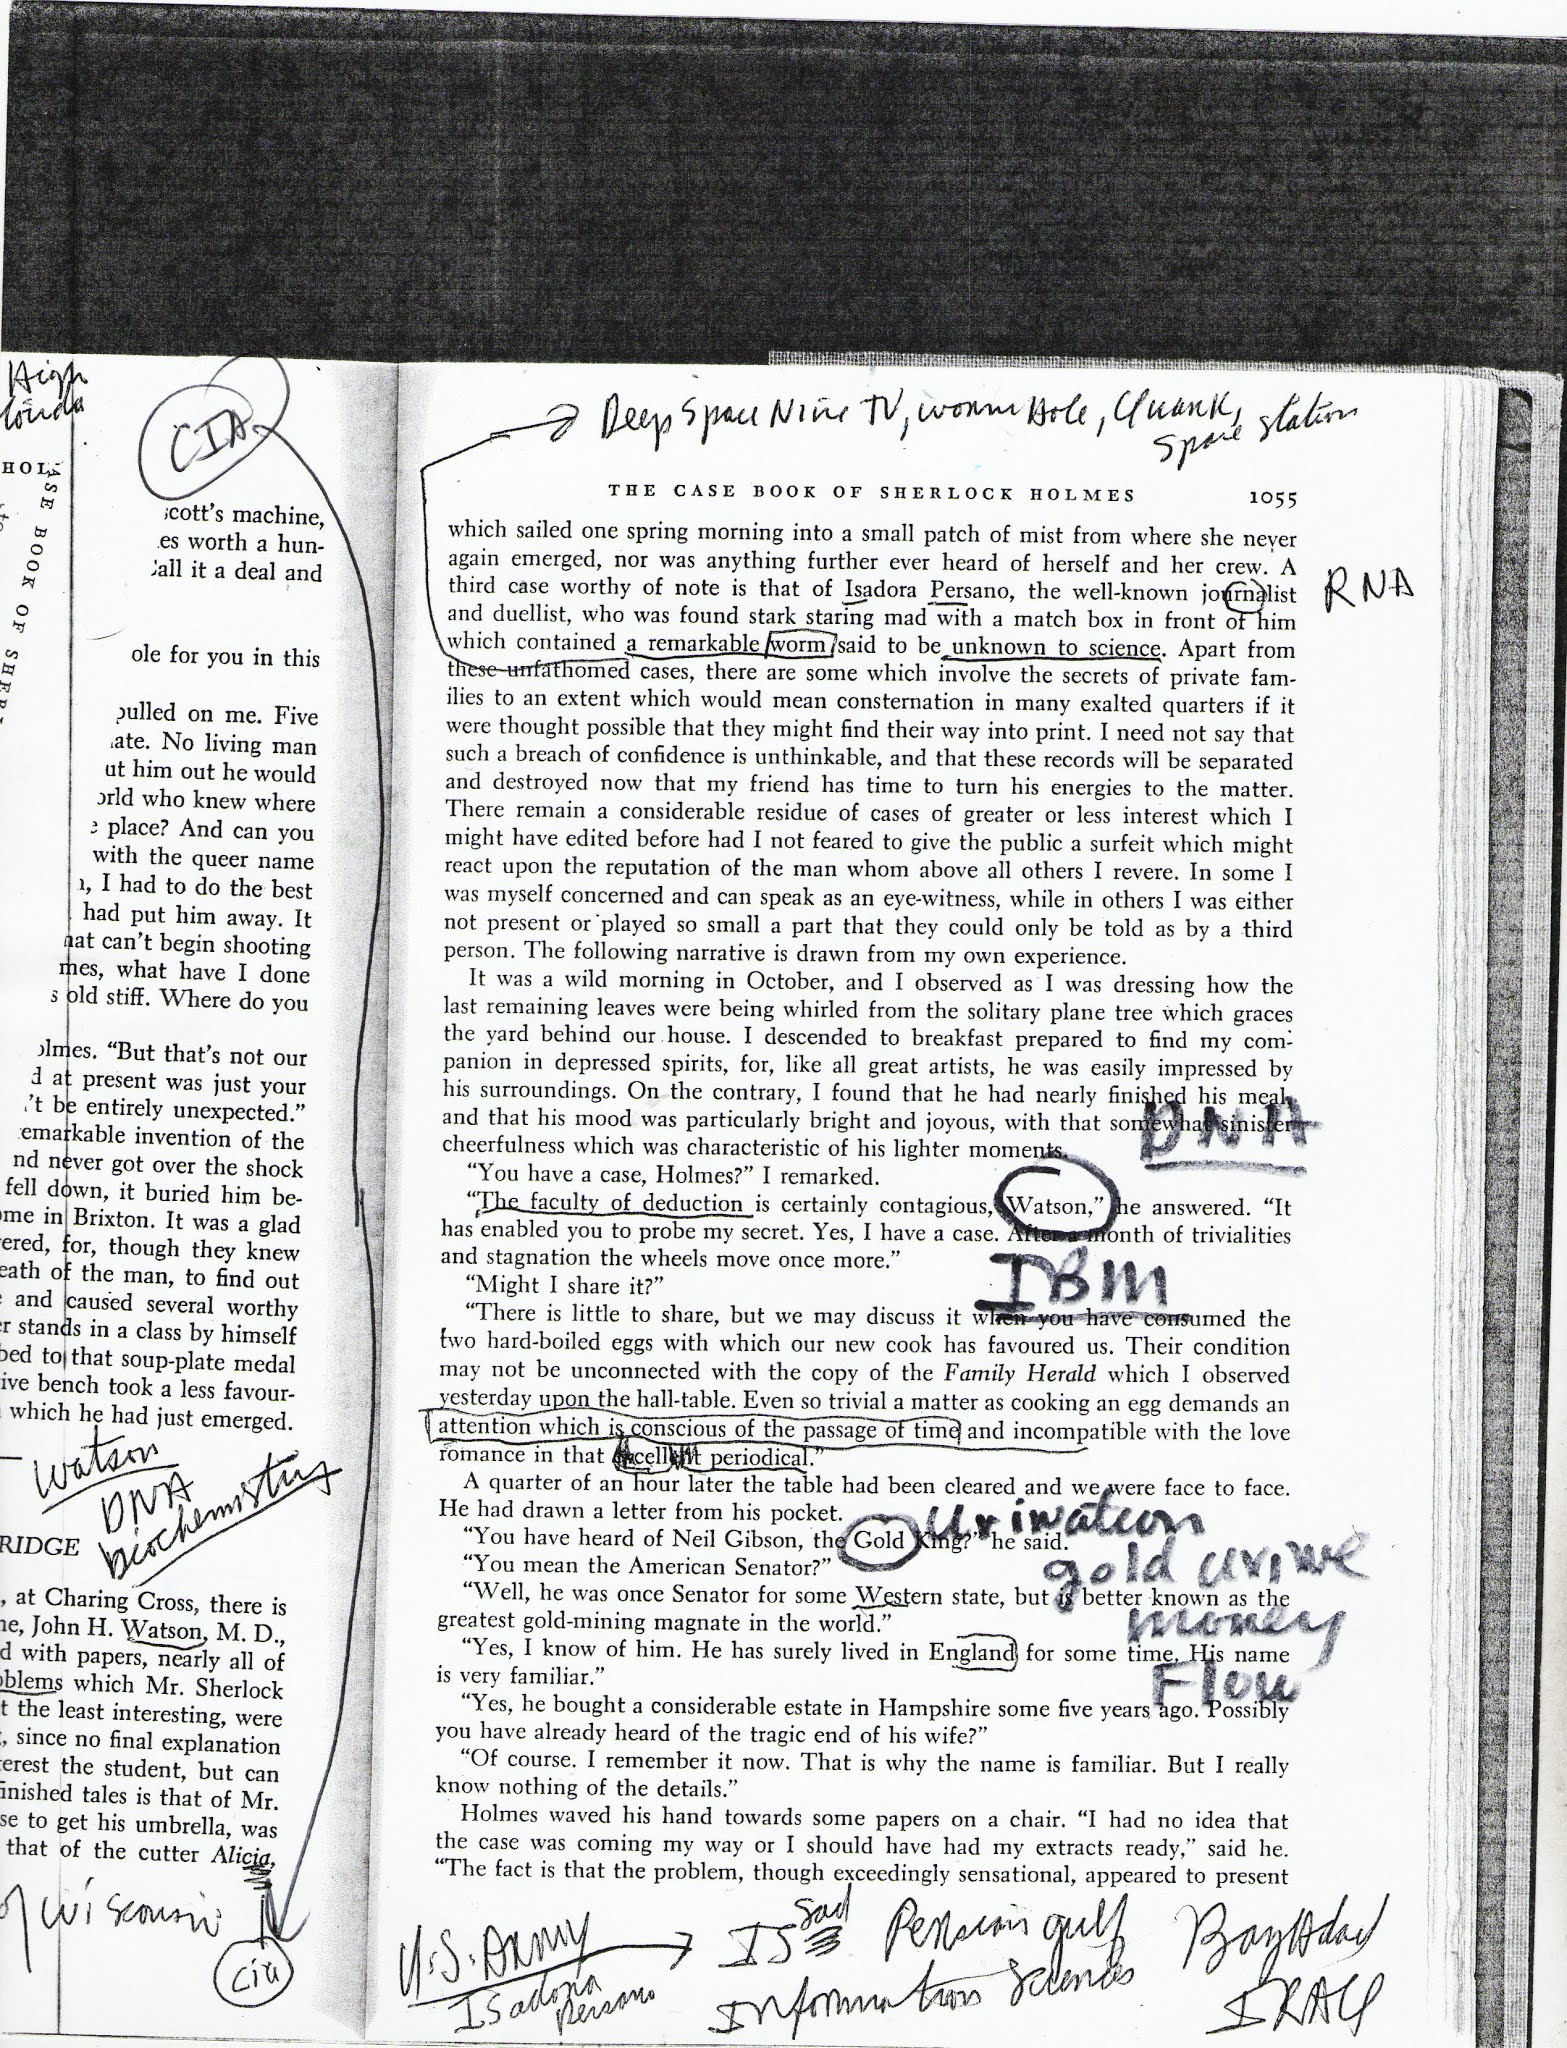 High
CIA
HOL
ASE BOOK OF SHER
cott's machine,
es worth a hun-
all it a deal and
ole for you in this
pulled on me. Five
ate. No living man
ut him out he would
orld who knew where
e place? And can you
with the queer name
, I had to do the best
had put him away. It
hat can't begin shooting
mes, what have I done
s old stiff. Where do you
olmes. “But that's not our
d at present was just your
't be entirely unexpected.”
emarkable invention of the
nd never got over the shock
fell down, it buried him be-
ome in Brixton. It was a glad
ered, for, though they knew
eath of the man, to find out
and caused several worthy
er stands in a class by himself
bed to that soup-plate medal
ive bench took a less favour-
which he had just emerged.
Watson
DNA
biochemistry
RIDGE
, at Charing Cross, there is
ne, John H. Watson, M. D.,
d with papers, nearly all of
oblems which Mr. Sherlock
t the least interesting, were
, since no final explanation
terest the student, but can
finished tales is that of Mr.
se to get his umbrella, was
that of the cutter Alicia,
of Wisconsin
Cia
Deep Space Nine TV, worm Hole, Quark,
Space Station
THE CASE BOOK OF SHERLOCK HOLMES 1055
which sailed one spring morning into a small patch of mist from where she never
again emerged, nor was anything further ever heard of herself and her crew. A
third case worthy of note is that of Isadora Persano, the well-known journalist RNA
and duellist, who was found stark staring mad with a match box in front of him
which contained a remarkable worm said to be unknown to science. Apart from
these unfathomed cases, there are some which involve the secrets of private fam-
ilies to an extent which would mean consternation in many exalted quarters if it
were thought possible that they might find their way into print. I need not say that
such a breach of confidence is unthinkable, and that these records will be separated
and destroyed now that my friend has time to turn his energies to the matter.
There remain a considerable residue of cases of greater or less interest which I
might have edited before had I not feared to give the public a surfeit which might
react upon the reputation of the man whom above all others I revere. In some I
was myself concerned and can speak as an eye-witness, while in others I was either
not present or played so small a part that they could only be told as by a third
person. The following narrative is drawn from my own experience.
It was a wild morning in October, and I observed as I was dressing how the
last remaining leaves were being whirled from the solitary plane tree which graces
the yard behind our house. I descended to breakfast prepared to find my com-
panion in depressed spirits, for, like all great artists, he was easily impressed by
his surroundings. On the contrary, I found that he had nearly finished his meal,
and that his mood was particularly bright and joyous, with that somewhat sinister
DNA
cheerfulness which was characteristic of his lighter moments.
“You have a case, Holmes?” I remarked.
“The faculty of deduction is certainly contagious, Watson,” he answered. “It
has enabled you to probe my secret. Yes, I have a case. After a month of trivialities
and stagnation the wheels move once more.”
IBM
“Might I share it?”
“There is little to share, but we may discuss it when you have consumed the
two hard-boiled eggs with which our new cook has favoured us. Their condition
may not be unconnected with the copy of the Family Herald which I observed
yesterday upon the hall-table. Even so trivial a matter as cooking an egg demands an
attention which is conscious of the passage of time and incompatible with the love
romance in that excellent periodical.”
A quarter of an hour later the table had been cleared and we were face to face.
He had drawn a letter from his pocket.
Urination
“You have heard of Neil Gibson, the Gold King?” he said.
“You mean the American Senator?”
gold urine
“Well, he was once Senator for some Western state, but is better known as the
greatest gold-mining magnate in the world.”
money
“Yes, I know of him. He has surely lived in England for some time. His name
is very familiar.”
Flow
“Yes, he bought a considerable estate in Hampshire some five years ago. Possibly
you have already heard of the tragic end of his wife?”
“Of course. I remember it now. That is why the name is familiar. But I really
know nothing of the details.”
Holmes waved his hand towards some papers on a chair. “I had no idea that
the case was coming my way or I should have had my extracts ready,” said he.
“The fact is that the problem, though exceedingly sensational, appeared to present
U.S. Army
Isadora
Persano
IS Sad
Persian gulf
Information Sciences
Baghdad
IRAQ